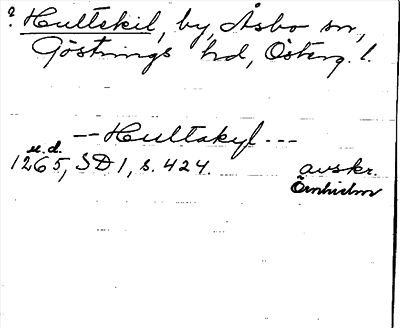 ? Hultskil, by, Åsbo sn,
Göstrings hd, Österg. l.
-- Hultakyl ---
u.d.
1265, SD 1, s. 424. avskr.
Örnhielm